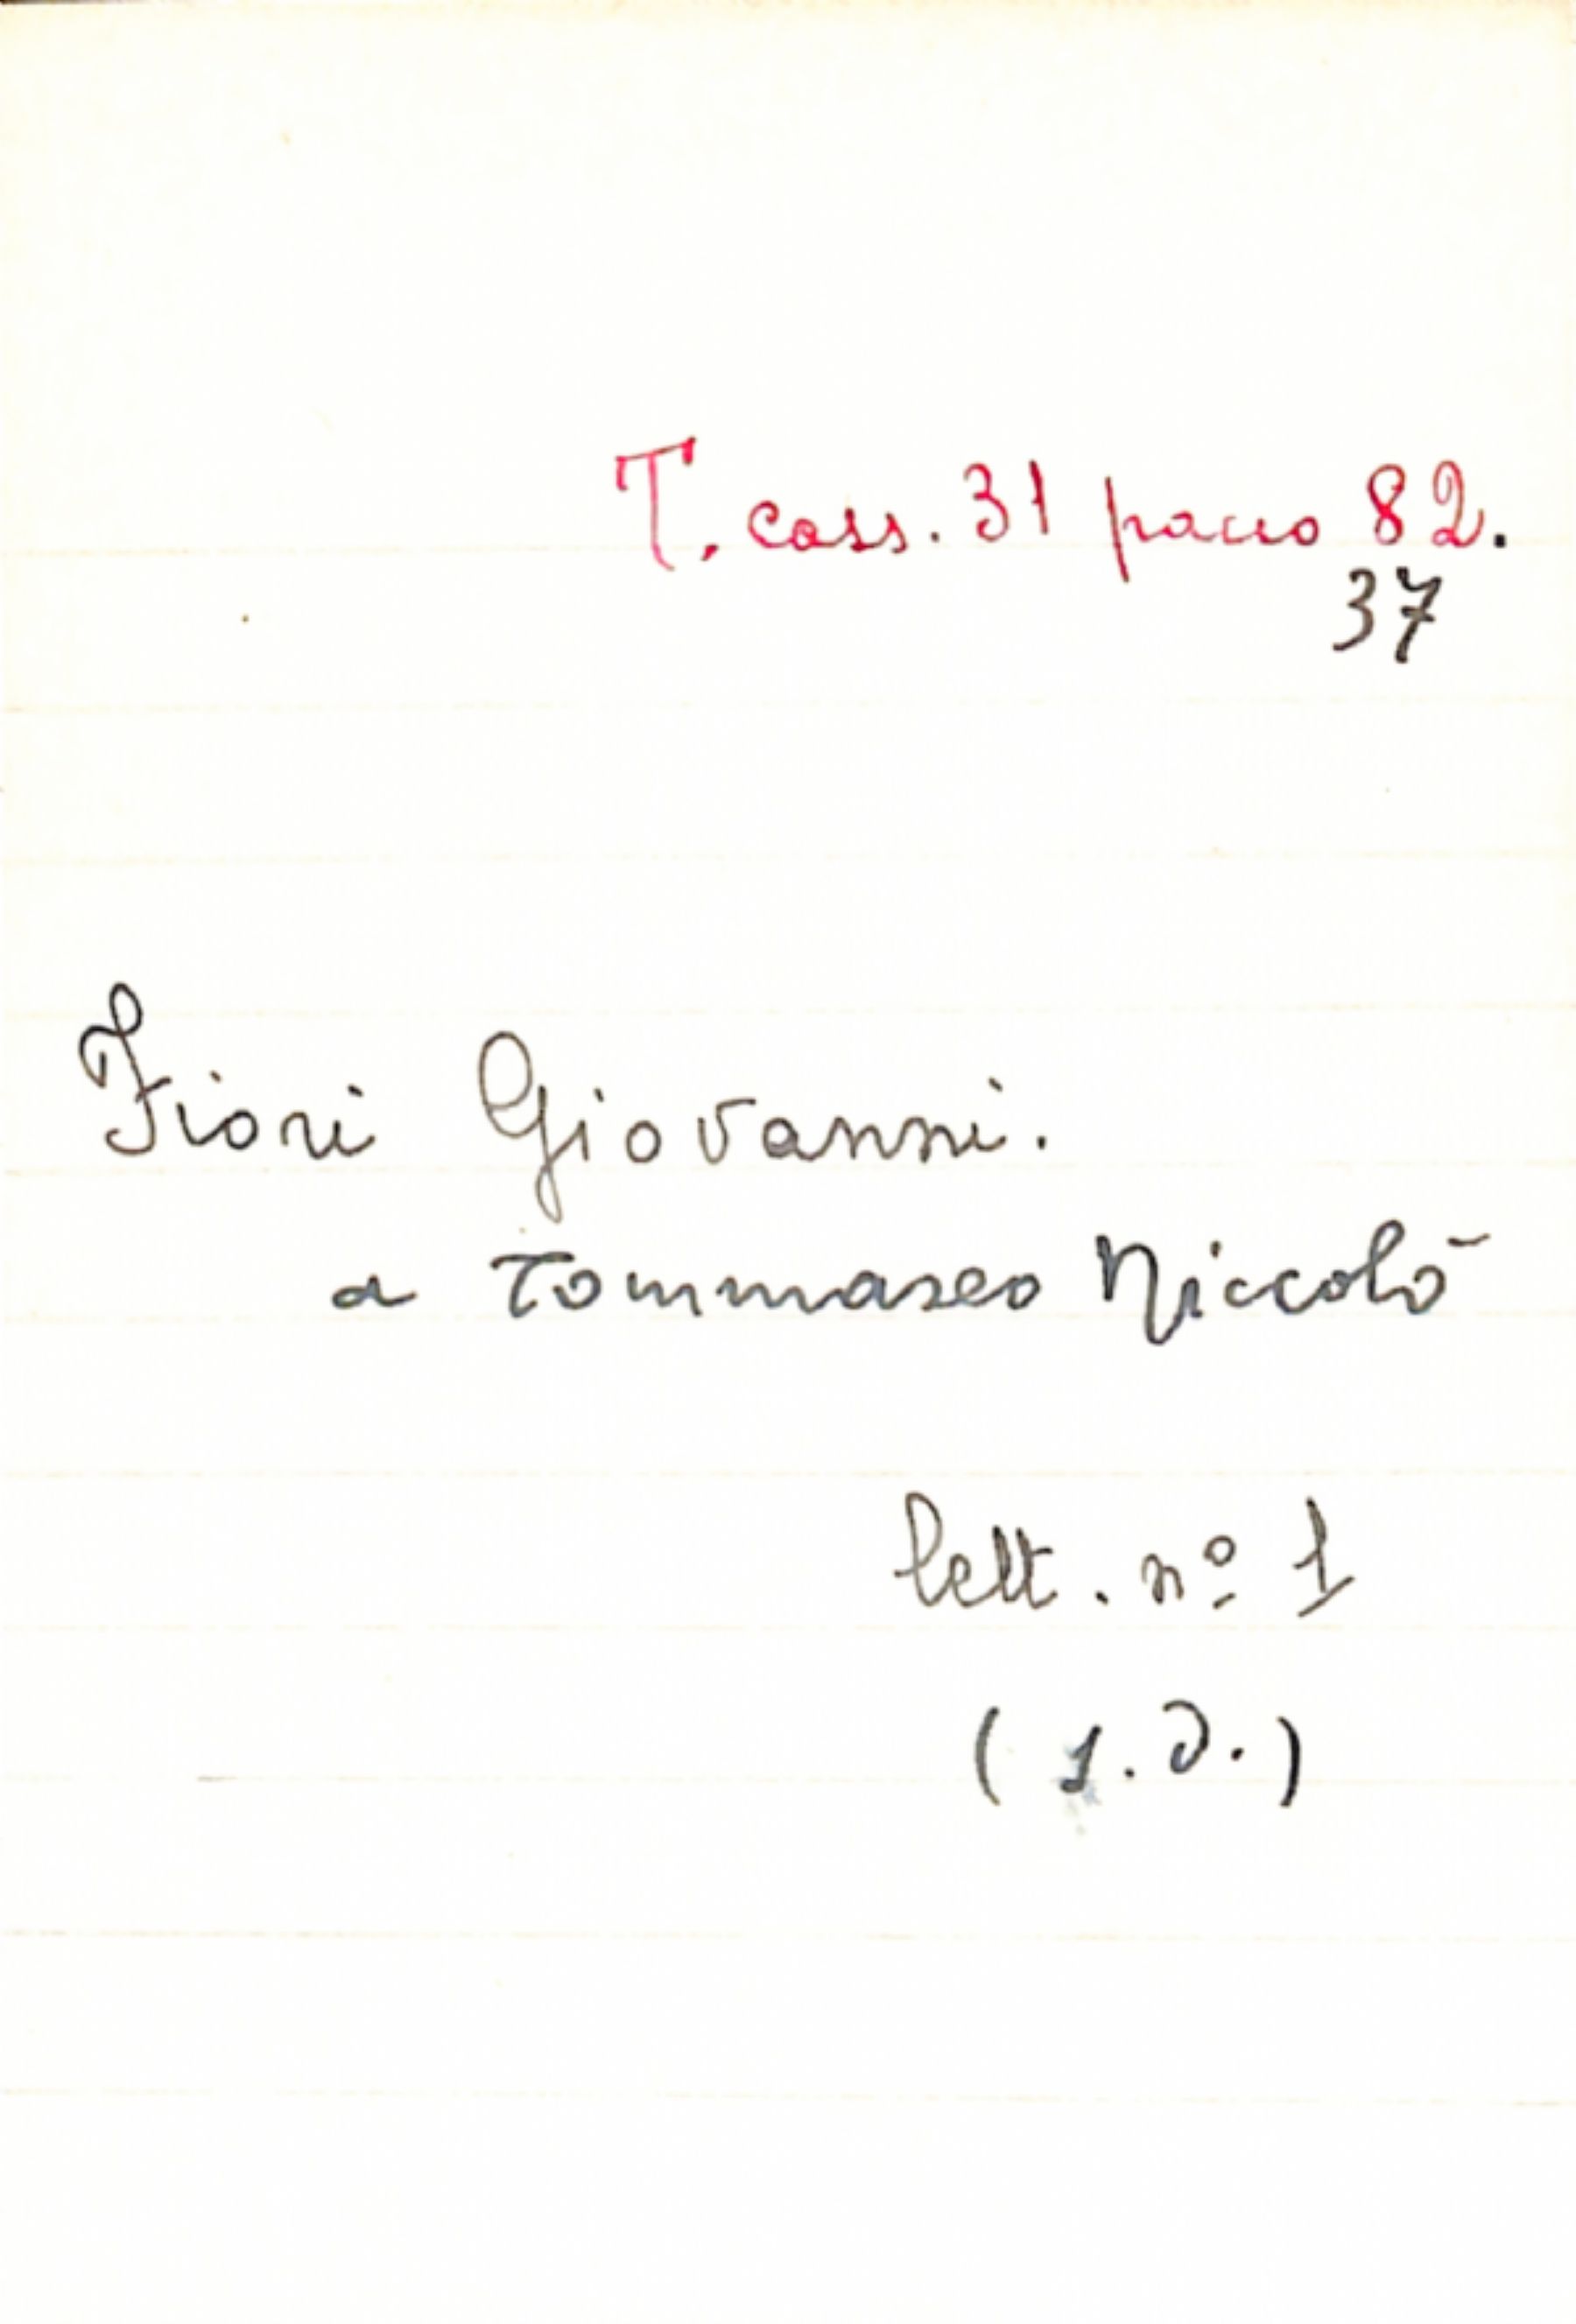 T. cass. 31 pacco 82.
37
Fiori Giovanni.
a Tommaseo Niccolò
lett. nº 1
(s.d.)